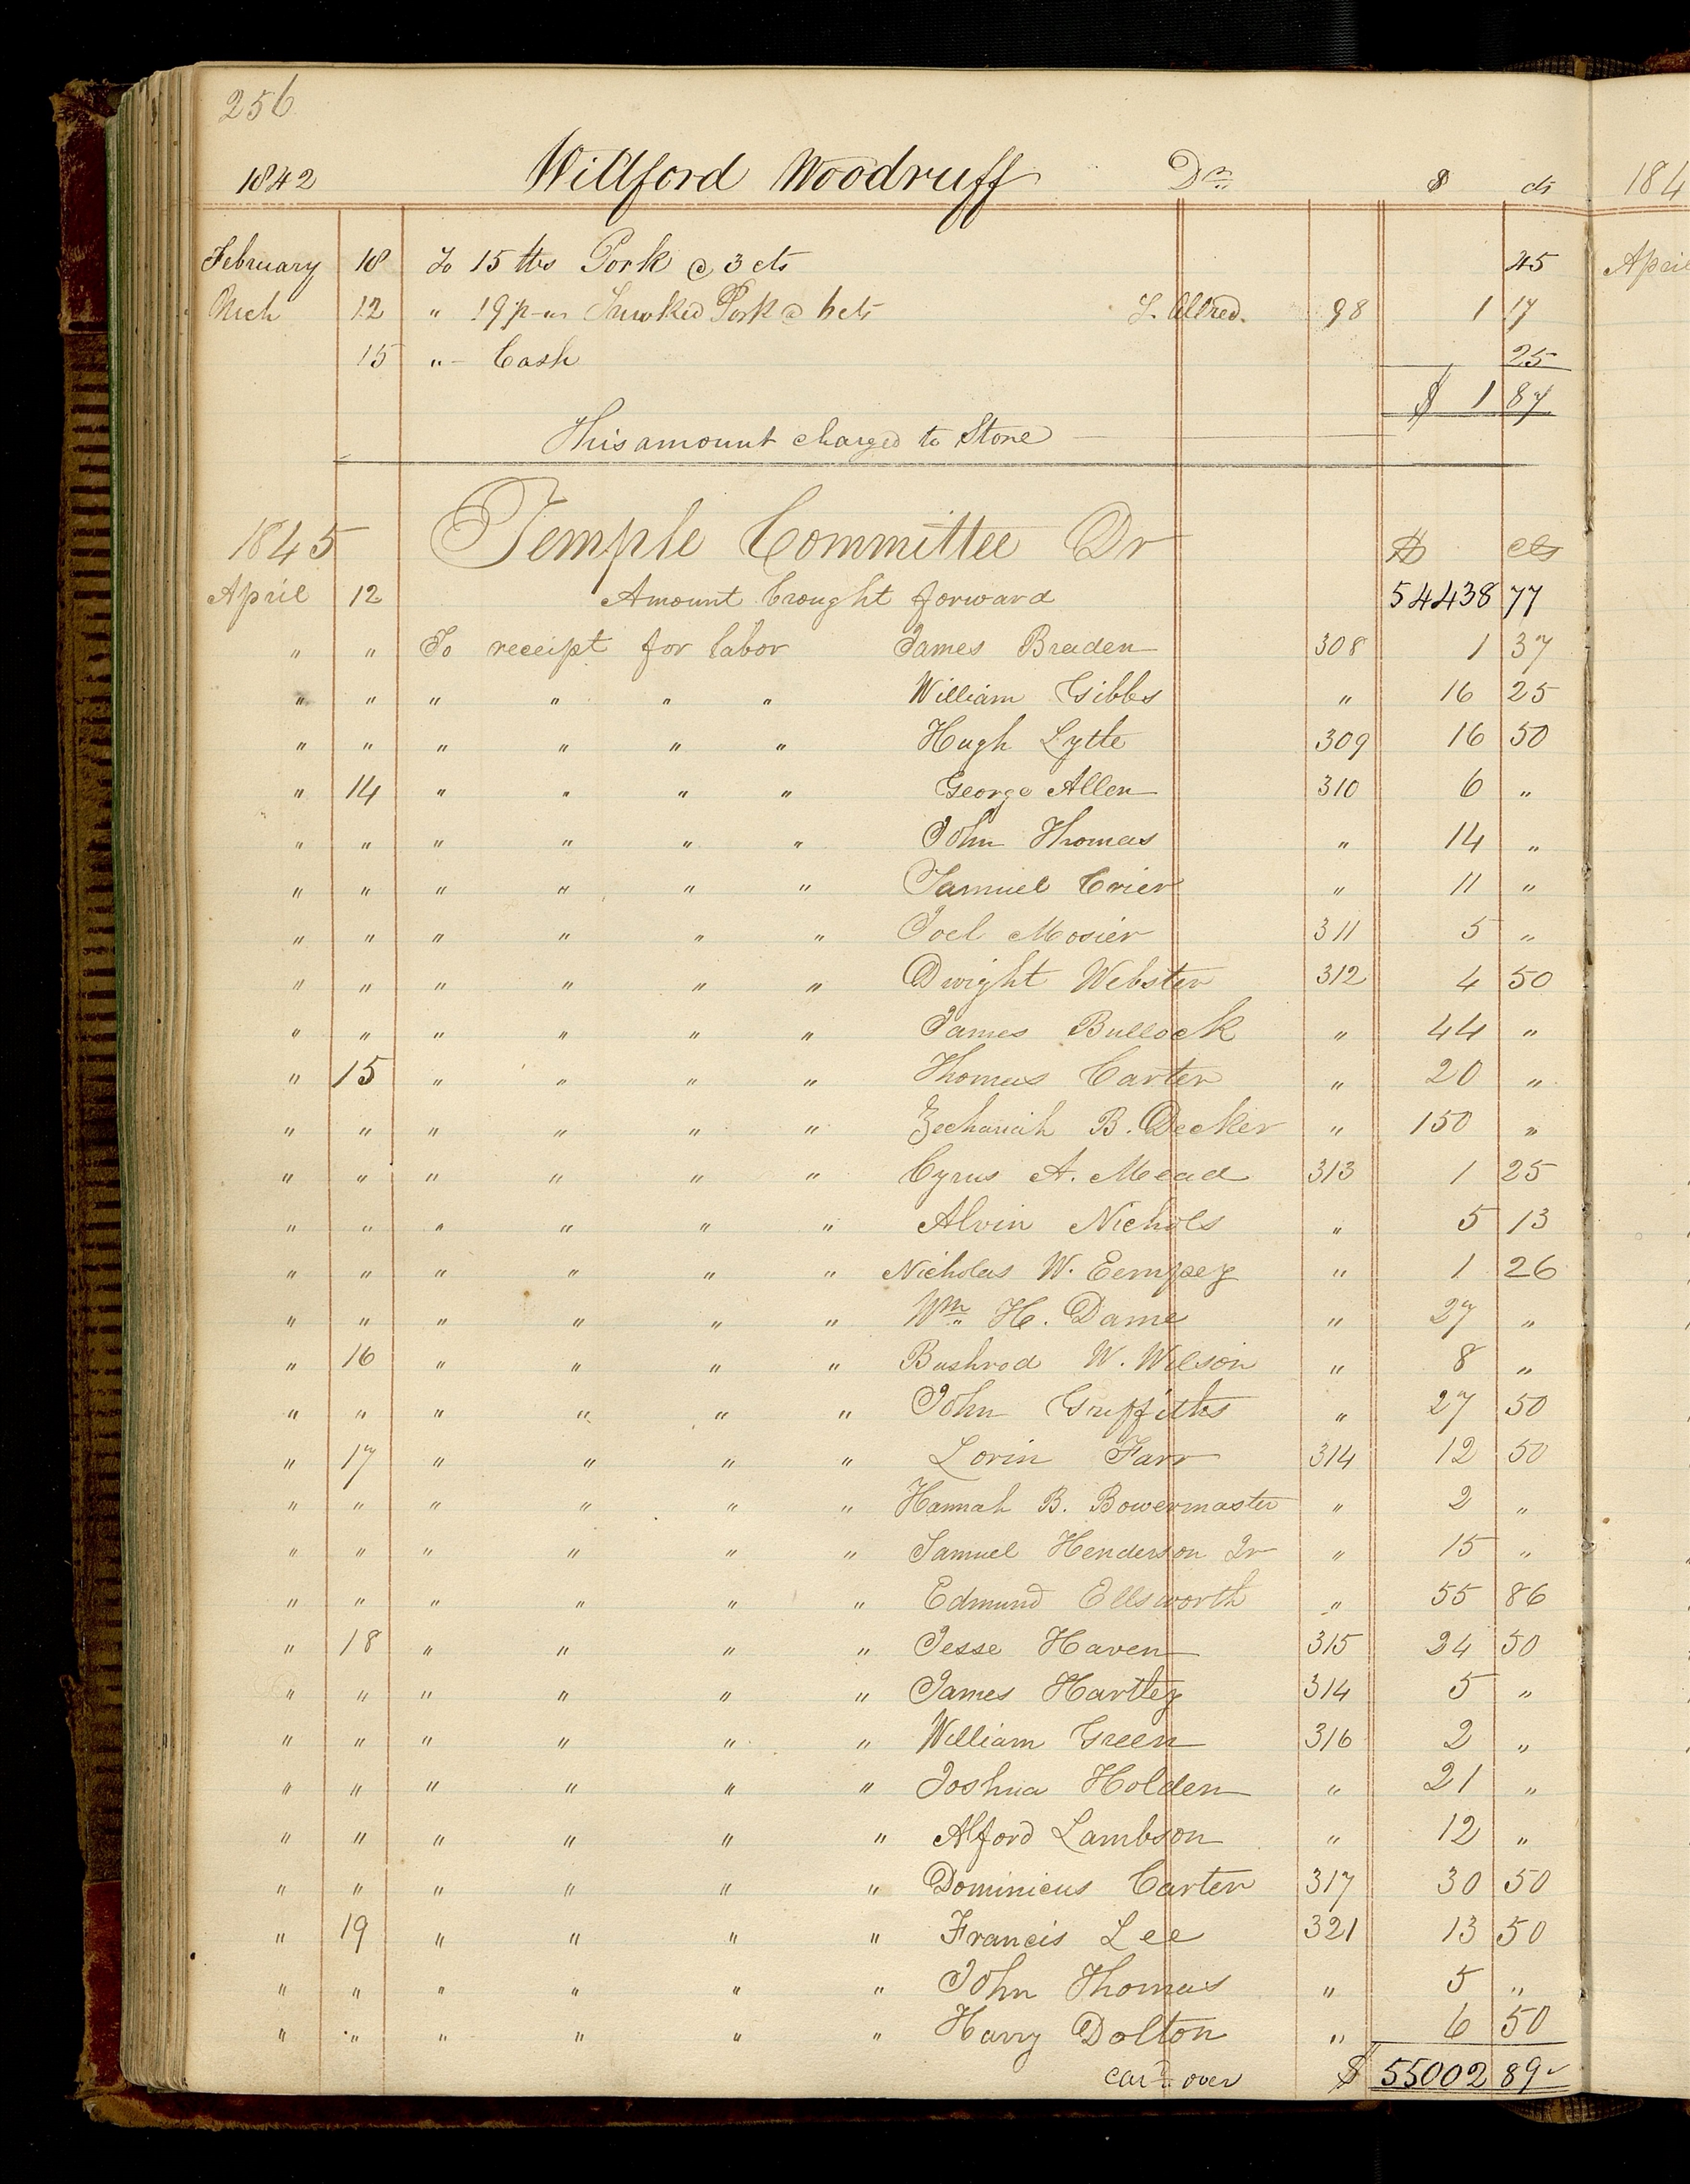 256
1842 Willford Woodruff Dr. $ cts
February 18 To 15 lbs Pork @ 3 cts 45
Mch 12 " 19 Smoked Pork @ 6 cts Allred 98 1 17
15 " Cash 25
$ 1 87
This amount charged to Store
1845 Temple Committee Dr $ cts
April 12 Amount brought forward 54438 77
" " To receipt for labor James Braden 308 1 37
" " " " " " William Gibbs " 16 25
" " " " " " Hugh Lytle 309 16 50
" 14 " " " " George Allen 310 6 "
" " " " " " John Thomas " 14 "
" " " " " " Samuel Crier " 11 "
" " " " " " Joel Mosier 311 5 "
" " " " " " Dwight Webster 312 4 50
" " " " " " James Bullock " 44 "
" 15 " " " " Thomas Carter " 20 "
" " " " " " Zechariah B. Decker " 150 "
" " " " " " Cyrus A. Mead 313 1 25
" " " " " " Alvin Nichols " 5 13
" " " " " " Nicholas W. Eempey " 1 26
" " " " " " Wm H. Dame " 27 "
" 16 " " " " Bushrod W. Wilson " 8 "
" " " " " " John Gruffiths " 27 50
" 17 " " " " Lorin Farr 314 12 50
" " " " " " Hannah B. Bowermaster " 2 "
" " " " " " Samuel Henderson Jr " 15 "
" " " " " " Edmund Ellsworth " 55 86
" 18 " " " " Jesse Haven 315 24 50
" " " " " " James Hartley 314 5 "
" " " " " " William Green 316 2 "
" " " " " " Joshua Holden " 21 "
" " " " " " Alford Lambson " 12 "
" " " " " " Dominicus Carter 317 30 50
" 19 " " " " Francis Lee 321 13 50
" " " " " " John Thomas " 5 "
" " " " " " Harry Dolton " 6 50
card over $ 55002 89
184
April